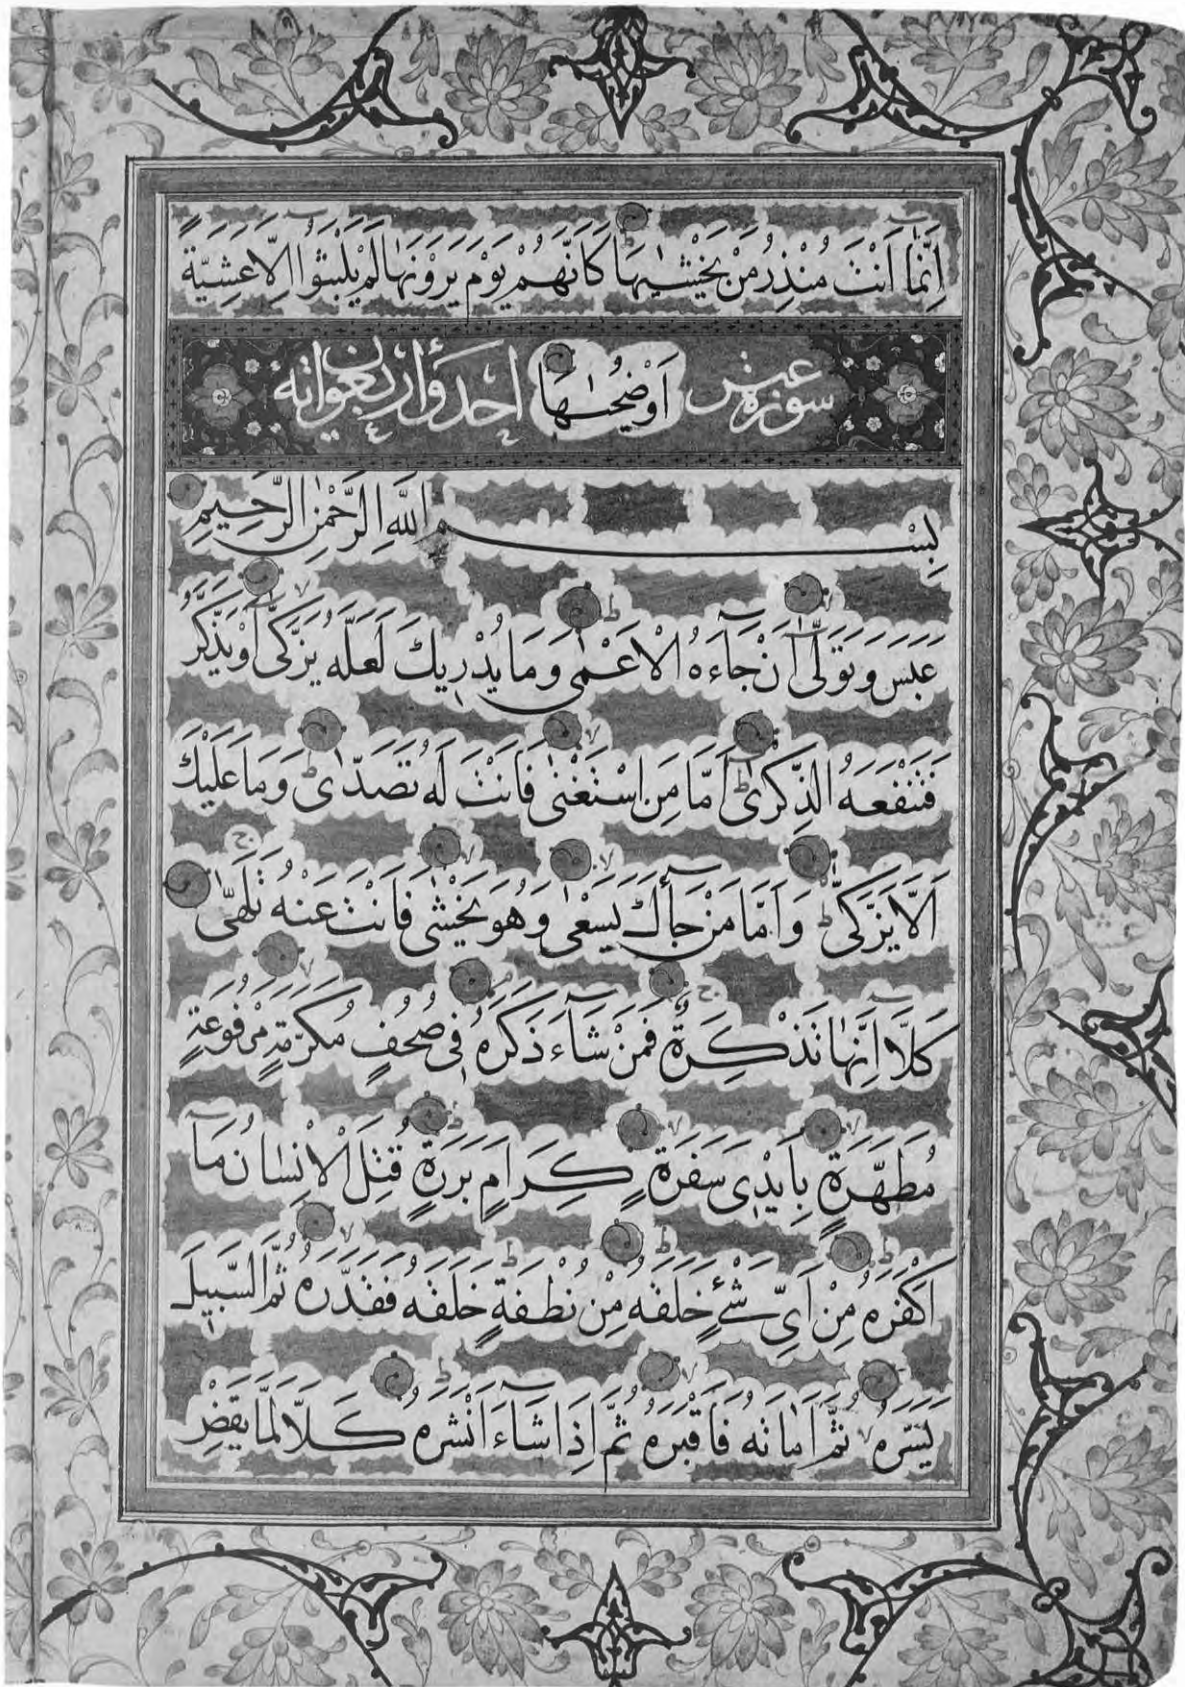 اِنَّمَآ اَنْتَ مُنْذِرُ مَنْ يَخْشٰيهَا ط كَاَنَّهُمْ يَوْمَ يَرَوْنَهَا لَمْ يَلْبَثُٓوا اِلَّا عَشِيَّةً
سورة عبس اَوْ ضُحٰيهَا احد واربعون اية
بِسْمِ اللّٰهِ الرَّحْمٰنِ الرَّحِيمِ
عَبَسَ وَتَوَلّٰىٓ اَنْ جَآءَهُ الْاَعْمٰى ط وَمَا يُدْرِيكَ لَعَلَّهُ يَزَّكّٰىٓ اَوْ يَذَّكَّرُ
فَتَنْفَعَهُ الذِّكْرٰى ط اَمَّا مَنِ اسْتَغْنٰى فَاَنْتَ لَهُ تَصَدّٰى ط وَمَا عَلَيْكَ
اَلَّا يَزَّكّٰى ط وَاَمَّا مَنْ جَآءَكَ يَسْعٰى وَهُوَ يَخْشٰى فَاَنْتَ عَنْهُ تَلَهّٰى ج
كَلَّٓا اِنَّهَا تَذْكِرَةٌ ج فَمَنْ شَآءَ ذَكَرَهُ م فِى صُحُفٍ مُكَرَّمَةٍ مَرْفُوعَةٍ
مُطَهَّرَةٍ بِاَيْدِى سَفَرَةٍ كِرَامٍ بَرَرَةٍ ط قُتِلَ الْاِنْسَانُ مَآ
اَكْفَرَهُ ط مِنْ اَىِّ شَىْءٍ خَلَقَهُ ط مِنْ نُطْفَةٍ ط خَلَقَهُ فَقَدَّرَهُ ثُمَّ السَّبِيلَ
يَسَّرَهُ ثُمَّ اَمَاتَهُ فَاَقْبَرَهُ ثُمَّ اِذَا شَآءَ اَنْشَرَهُ ط كَلَّا لَمَّا يَقْضِ